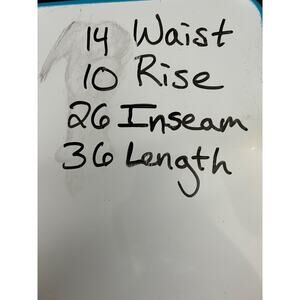 14 Waist
10 Rise
26 Inseam
36 Length